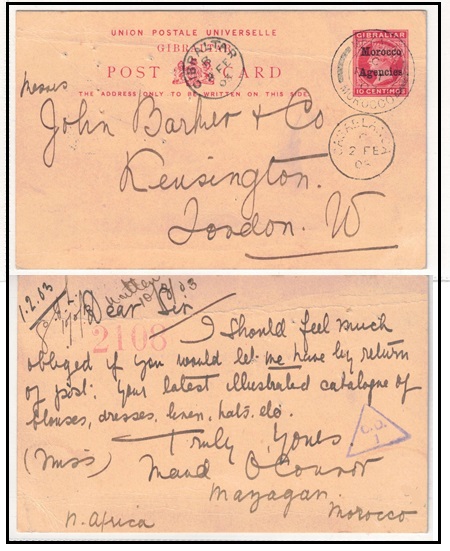 UNION POSTALE UNIVERSELLE
GIBRALTAR
POST CARD
THE ADDRESS ONLY TO BE WRITTEN ON THIS SIDE
GIBRALTAR
FE
GIBRALTAR
Morocco
Agencies
10 CENTIMOS
MOROCCO
CASABLANCA
2 FE
Messrs
John Barker & Co
Kensington.
London. W
1.2.03
written
10/2/03
Dear Sir
2108
I should feel much
obliged if you would let me have by return
of post. Your latest illustrated catalogue of
blouses, dresses, linen, hats, etc.
Truly Yours.
C.O.
1
(Miss) Maud O'Connor
Mazagan.
N. Africa Morocco